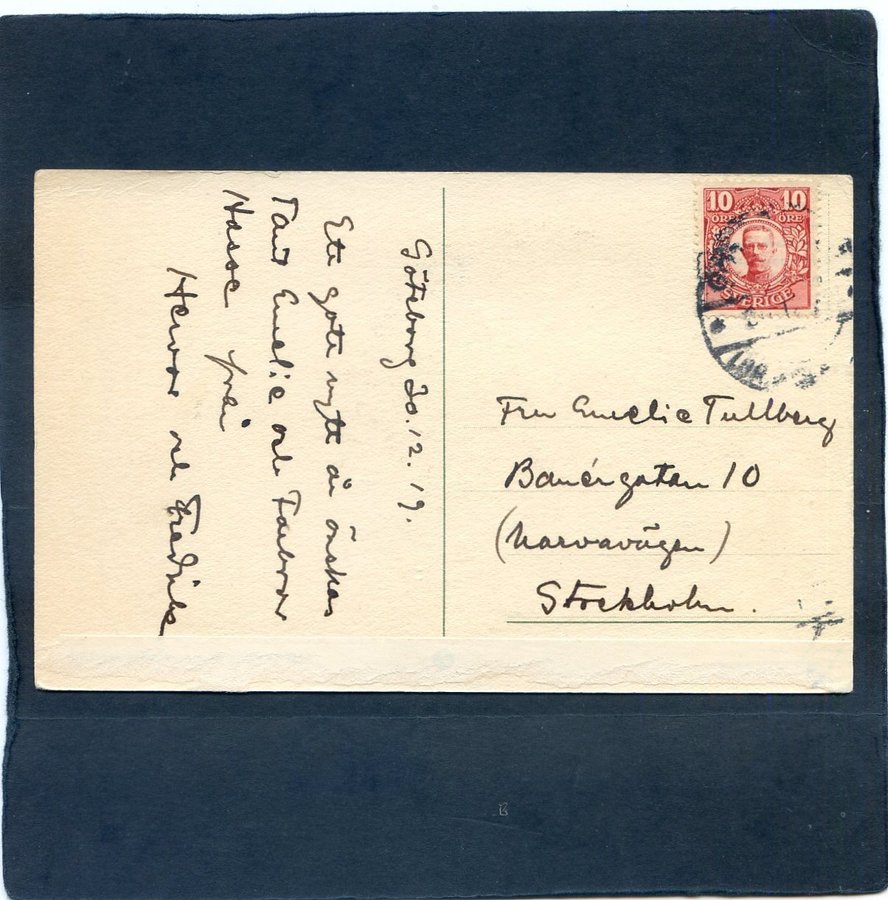 Göteborg 20.12.19.
Ett gott nytt år önskas
Tant Emelie och Farbror
Hasse från
Hervor och Fredrik
10 10
ÖRE ÖRE
SVERIGE
Fru Emelie Tullberg
Banérgatan 10
(Narvavägen)
Stockholm.